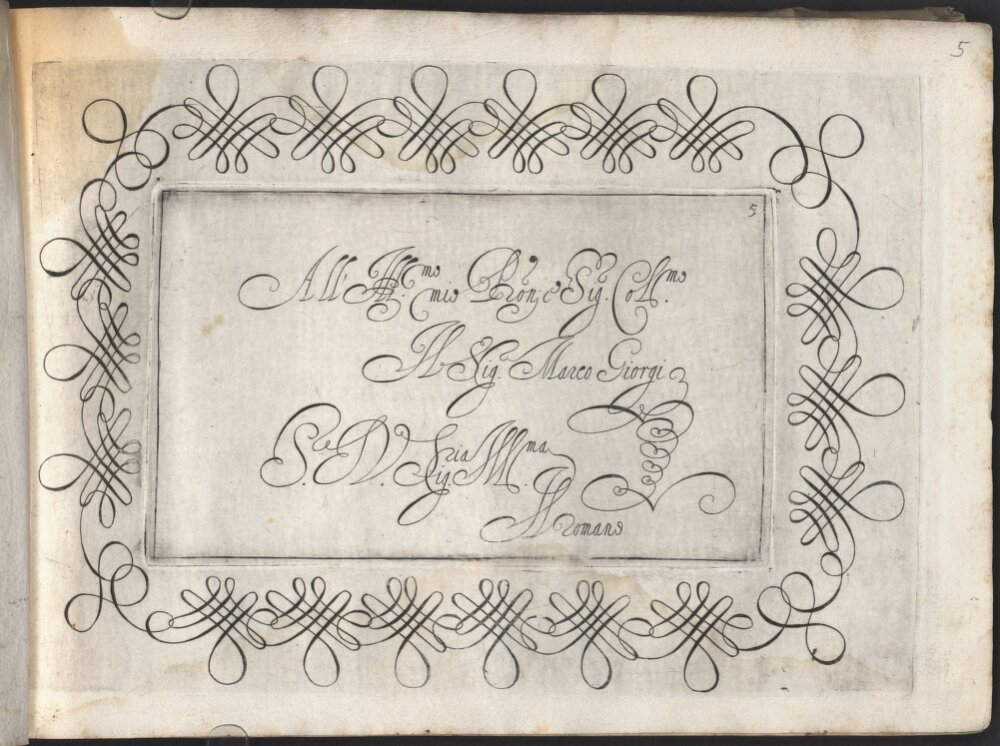 5
5
All' Ill.mo mio Pron, e Sig. Coll.mo
Il Sig. Marco Giorgi
S.re D. V. Sig.ria Ill.ma
Il Romano